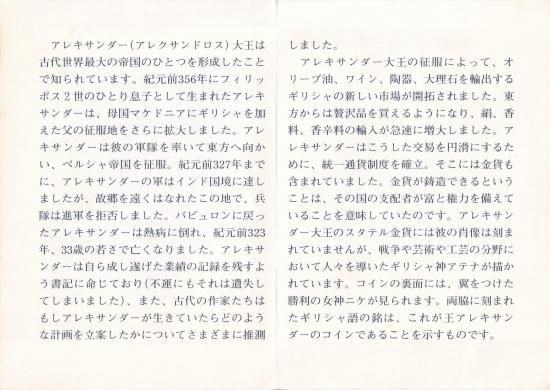 アレキサンダー(アレクサンドロス)大王は
古代世界最大の帝国のひとつを形成したこと
で知られています。紀元前356年にフィリッ
ポス2世のひとり息子として生まれたアレキ
サンダーは、母国マケドニアにギリシャを加
えた父の征服地をさらに拡大しました。アレ
キサンダーは彼の軍隊を率いて東方へ向か
い、ペルシャ帝国を征服。紀元前327年まで
に、アレキサンダーの軍はインド国境に達し
ましたが、故郷を遠くはなれたこの地で、兵
隊は進軍を拒否しました。バビュロンに戻っ
たアレキサンダーは熱病に倒れ、紀元前323
年、33歳の若さで亡くなりました。アレキサ
ンダーは自ら成し遂げた業績の記録を残すよ
う書記に命じており(不運にもそれは遺失し
てしまいました)、また、古代の作家たちは
もしアレキサンダーが生きていたらどのよう
な計画を立案したかについてさまざまに推測
しました。
アレキサンダー大王の征服によって、オ
リーブ油、ワイン、陶器、大理石を輸出する
ギリシャの新しい市場が開拓されました。東
方からは贅沢品を買えるようになり、絹、香
料、香辛料の輸入が急速に増大しました。ア
レキサンダーはこうした交易を円滑にするた
めに、統一通貨制度を確立。そこには金貨も
含まれていました。金貨が鋳造できるという
ことは、その国の支配者が富と権力を備えて
いることを意味していたのです。アレキサン
ダー大王のスタテル金貨には彼の肖像は刻ま
れていませんが、戦争や芸術や工芸の分野に
おいて人々を導いたギリシャ神アテナが描か
れています。コインの裏面には、翼をつけた
勝利の女神ニケが見られます。両脇に刻まれ
たギリシャ語の銘は、これが王アレキサン
ダーのコインであることを示すものです。